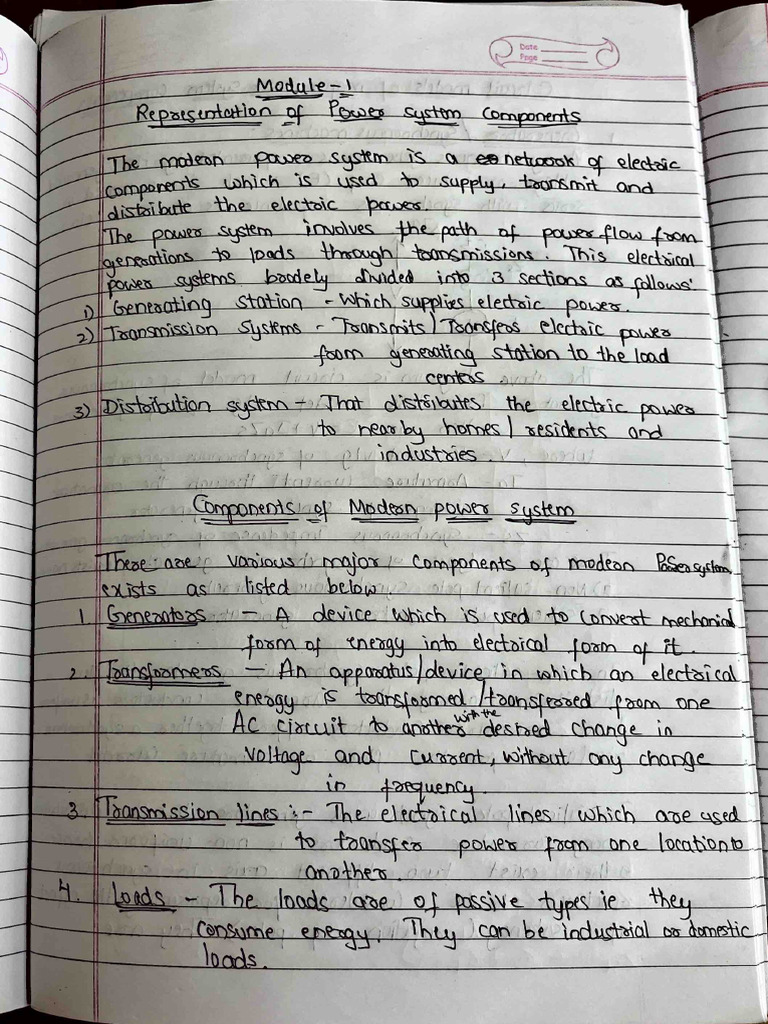 Date
Page
Module-1
Representation of Power system components
The modern power system is a network of electric
components which is used to supply, transmit and
distribute the electric power.
The power system involves the path of power flow from
generations to loads through transmissions. This electrical
power systems brodely divided into 3 sections as follows:
1) Generating station - which supplies electric power.
2) Transmission systems - Transmits/Transfers electric power
from generating station to the load
centers.
3) Distribution system - That distributes the electric power
to nearby homes/residents and
industries.
Components of Modern power system
There are various major components of modern Power system
exists as listed below.
1. Generators - A device which is used to convert mechanical
form of energy into electrical form of it.
2. Transformers - An apparatus/device in which an electrical
energy is transformed/transferred from one
AC circuit to another with the desired change in
voltage and current, without any change
in frequency.
3. Transmission lines :- The electrical lines which are used
to transfer power from one location to
another.
4. Loads - The loads are of passive types ie they
consume energy. They can be industrial or domestic
loads.